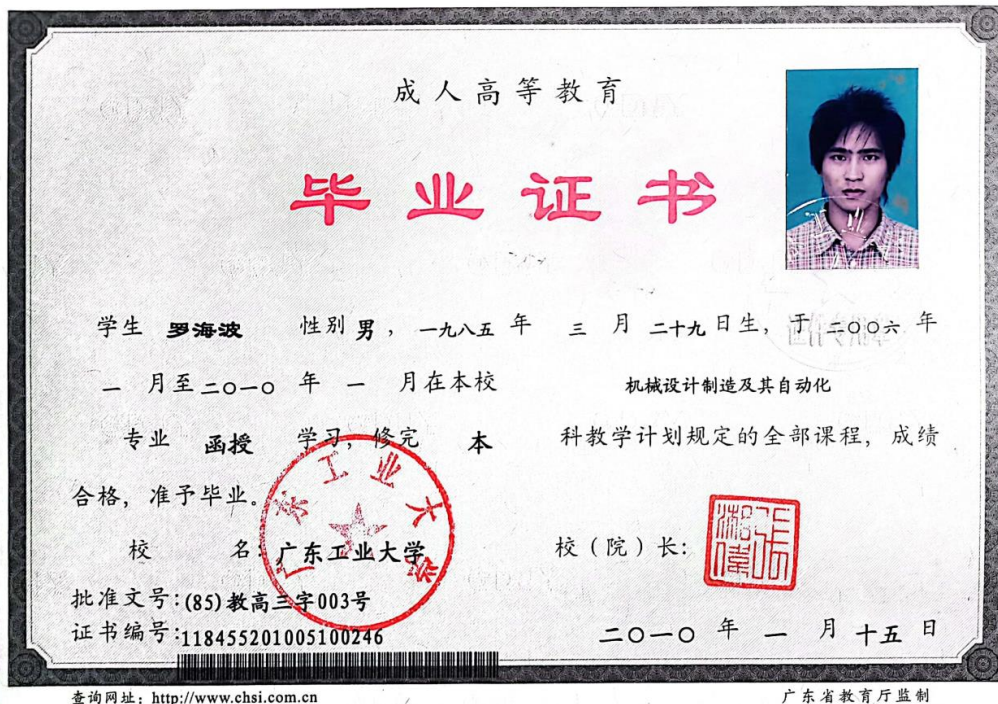 成人高等教育
毕业证书
学生 罗海波 性别 男，一九八五 年 三 月 二十九 日生，于 二〇〇六 年
一 月至 二〇一〇 年 一 月在本校 机械设计制造及其自动化
专业 函授 学习，修完 本 科教学计划规定的全部课程，成绩
合格，准予毕业。
广东工业大学
校 名：广东工业大学 校（院）长：
张湘伟
批准文号：(85)教高三字003号
证书编号：118455201005100246 二〇一〇 年 一 月 十五 日
查询网址：http://www.chsi.com.cn 广东省教育厅监制